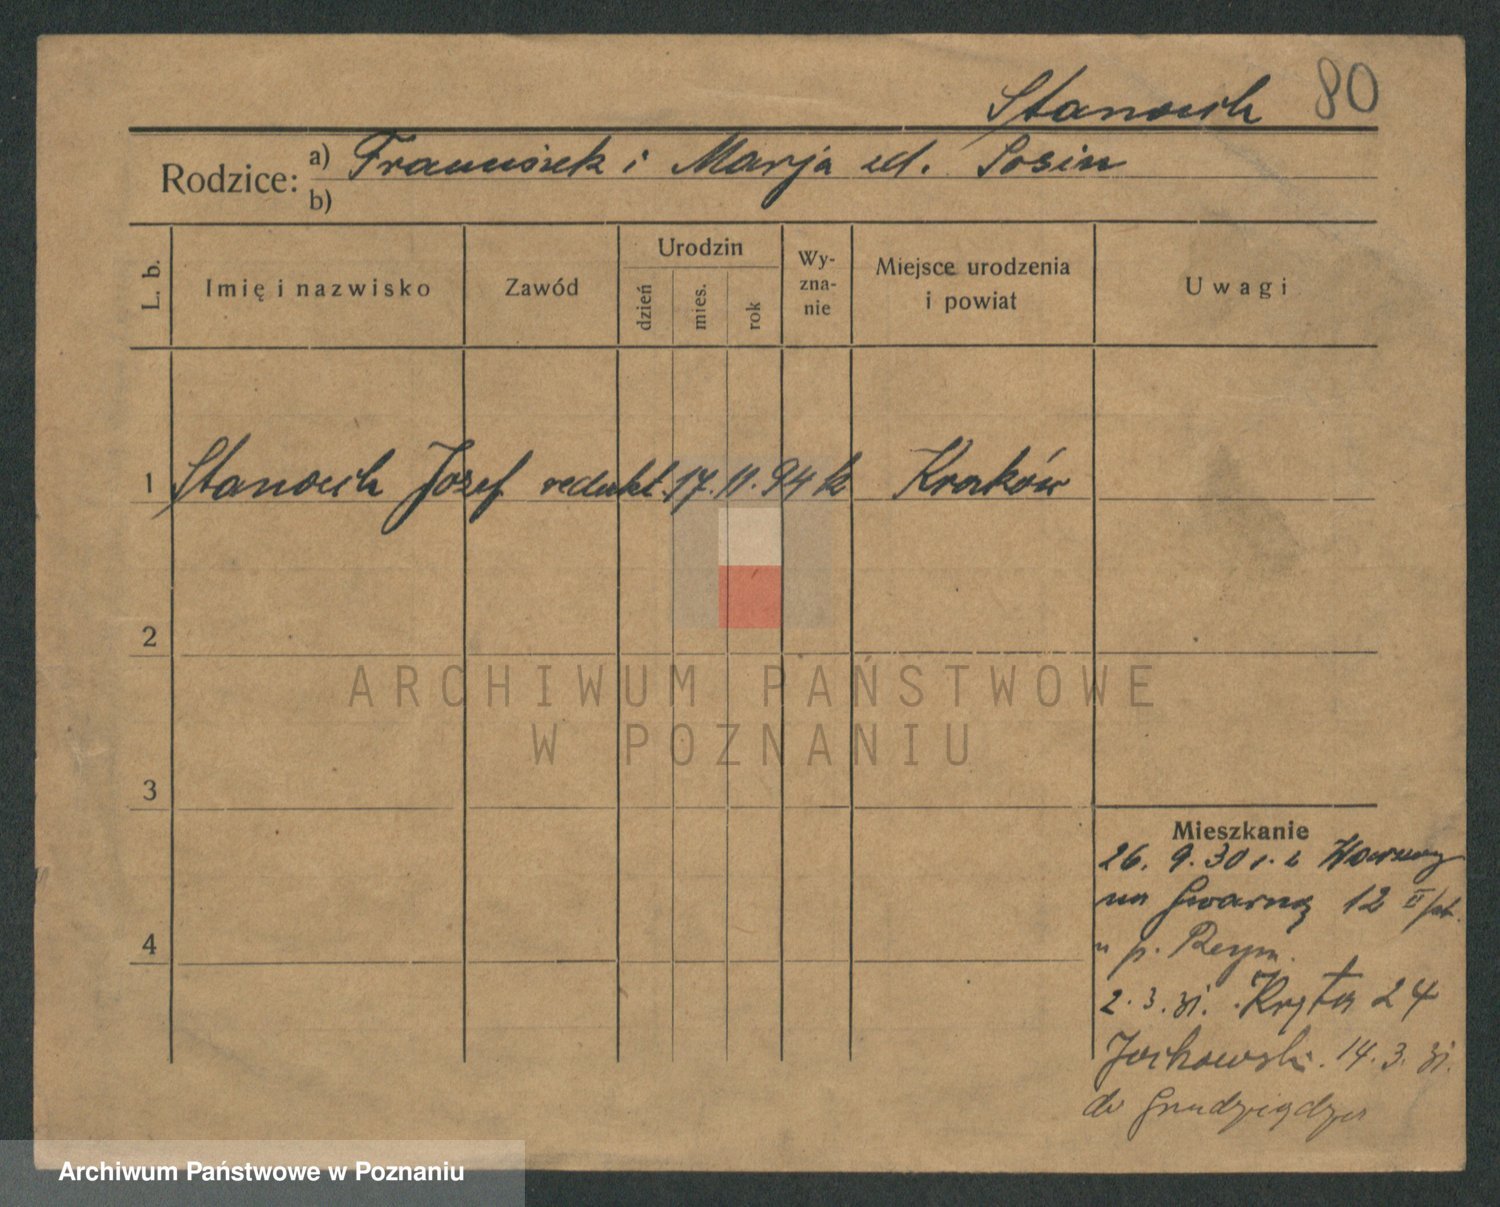 Stanouch 80
Rodzice: a) Franciszek i Marja zd. Sosin
b)
L. b.
Imię i nazwisko
Zawód
Urodzin
dzień
mies.
rok
Wy-
zna-
nie
Miejsce urodzenia
i powiat
Uwagi
1 Stanouch Józef redakt. 17. 11. 94 k Kraków
2
3
4
ARCHIWUM PAŃSTWOWE
W POZNANIU
Mieszkanie
26. 9. 30 r. z Warszawy
na Gwarną 12 II/pt.
u p. Reym.
2. 3. 31. Kręta 24
Jackowski. 14. 3. 31.
do Grudziądza
Archiwum Państwowe w Poznaniu